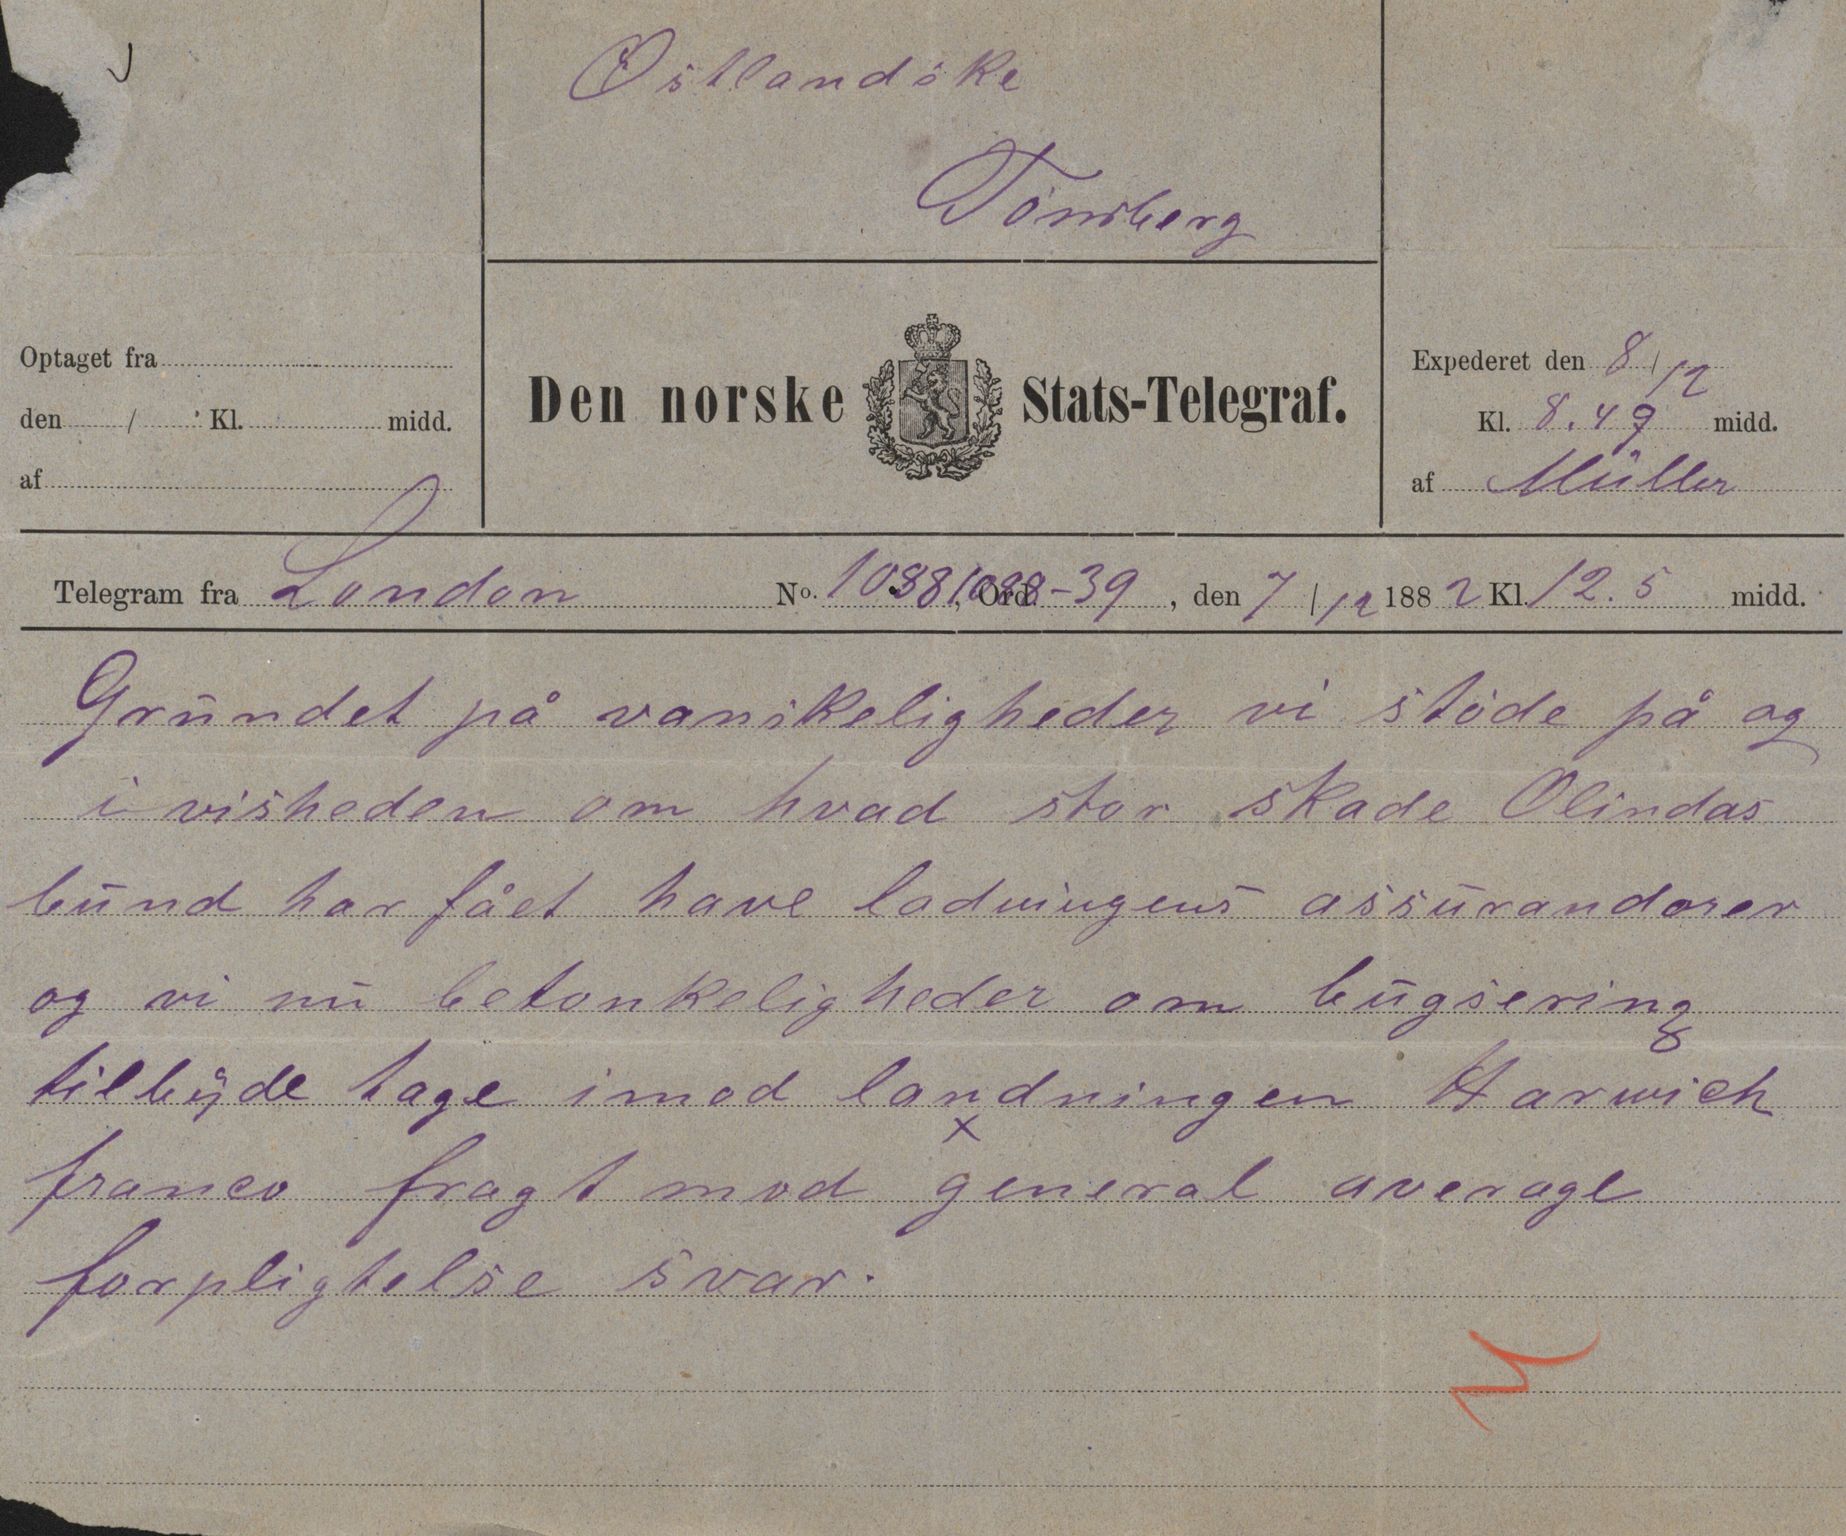 Østlandske
Tönsberg
Optaget fra
den / Kl. midd.
af
Den norske Stats-Telegraf.
Expederet den 8/12
Kl. 8.49 midd.
af Müller
Telegram fra London No. 1088, Ord. -39, den 7/12 1882 Kl. 12.5 midd.
Grundet på vanskeligheder vi støde på og
i visheden om hvad stor skade Olindas
bund har fået have ladningens assurandorer
og vi nu betonkeligheder om bugsering
tilbyde tage imod landningen Harwich
x
franco fragt mod general average
forpligtelse svar.